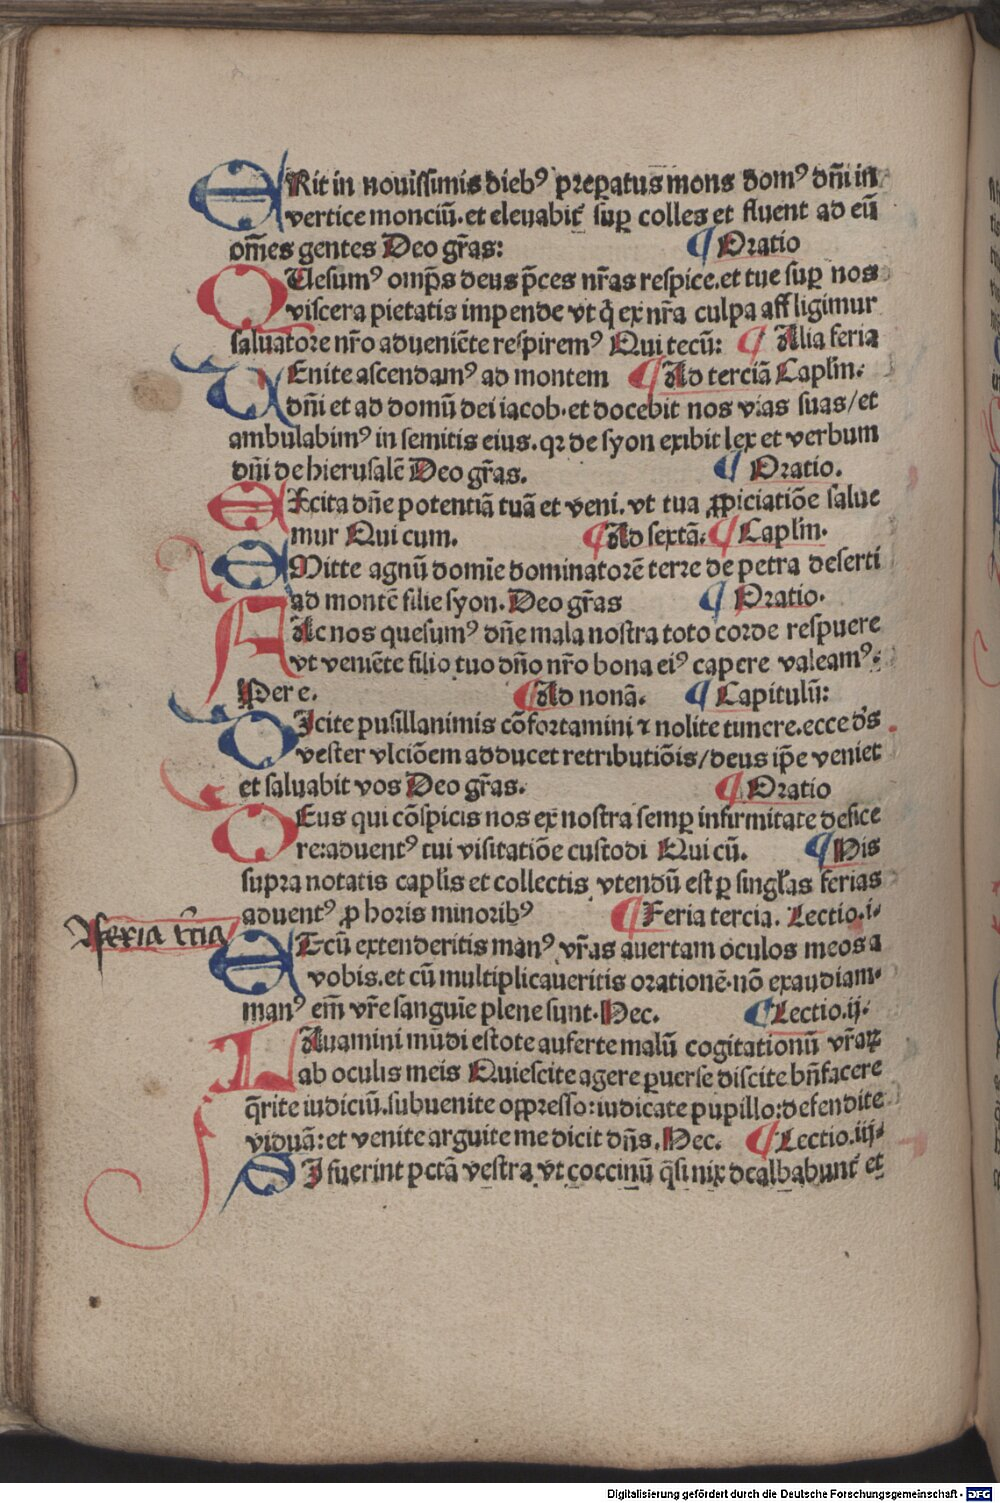 ERit in nouissimis dieb⁹ prepatus mons dom⁹ dñi in
vertice monciū.et eleuabit᷑ sup̱ colles et fluent ad eū
om̄es gentes Deo gr̄as:
¶ Oratio
QUesum⁹ omp̄s deus p̄ces nr̄as respice.et tue sup̱ nos
viscera pietatis impende vt q̄ ex nr̄a culpa affligimur
saluatore nr̄o adueniēte respirem⁹ Qui tecū: ¶ Alia feria
VEnite ascendam⁹ ad montem ¶ Ad terciā Caplm̄:
dñi et ad domū dei iacob.et docebit nos vias suas/et
ambulabim⁹ in semitis eius.qꝛ de syon exibit lex et verbum
dñi de hierusalē Deo gr̄as.
¶ Oratio.
EXcita dñe potentiā tuā et veni.vt tua ꝓpiciatiōe salue
mur Qui cum.
¶ Ad sextā: ¶ Caplm̄.
EMitte agnū domīe dominatorē terre de petra deserti
ad montē filie syon. Deo gr̄as
¶ Oratio.
FAc nos quesum⁹ dñe mala nostra toto corde respuere
vt veniēte filio tuo dño nr̄o bona ei⁹ capere valeam⁹:
Per e.
¶ Ad nonā. ¶ Capitulū:
DIcite pusillanimis cōfortamini ⁊ nolite timere.ecce ds̄
vester vlciōem adducet retributiōis/deus ip̄e veniet
et saluabit vos Deo gr̄as.
¶ Oratio
DEus qui cōspicis nos ex nostra semp̱ infirmitate defice
re:aduent⁹ tui visitatiōe custodi Qui cū. ¶ His
supra notatis caplis et collectis vtendū est ꝑ singl̄as ferias
aduent⁹ ꝓ horis minorib⁹
¶ Feria tercia. Lectio.i.
feria tc̄ia
ET cū extenderitis man⁹ vr̄as auertam oculos meos a
vobis.et cū multiplicaueritis orationē.nō exaudiam.
man⁹ em̄ vr̄e sanguīe plene sunt. Hec.
¶ Lectio.ij.
LAuamini mūdi estote auferte malū cogitationū vr̄aꝝ
ab oculis meis Quiescite agere ꝑuerse discite bn̄facere
q̄rite iudiciū.subuenite oppresso:iudicate pupillo:defendite
viduā:et venite arguite me dicit dñs. Hec. ¶ Lectio.iij.
SI fuerint pctā vestra vt coccinū q̄si nix dealbabunt᷑ et
Digitalisierung gefördert durch die Deutsche Forschungsgemeinschaft - DFG